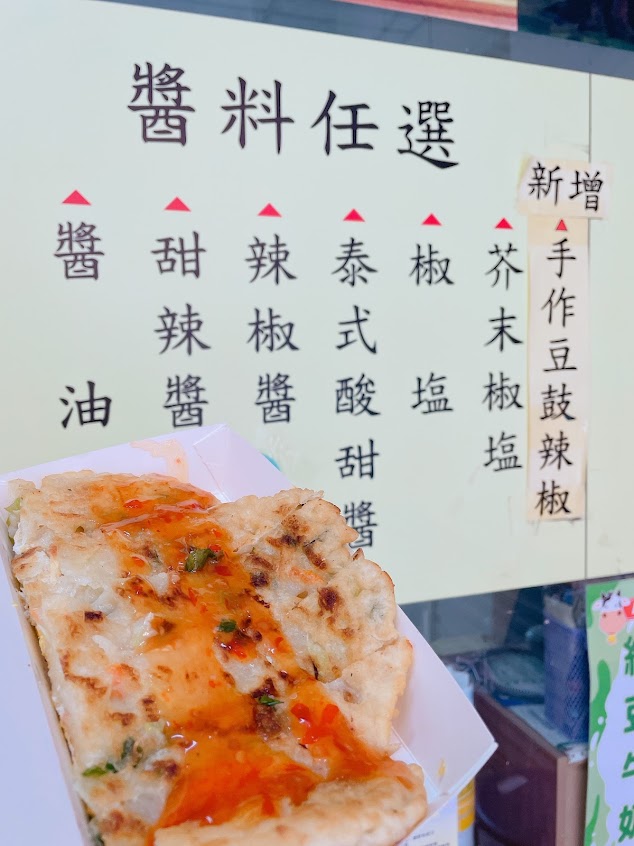 醬料任選
醬油
甜辣醬
辣椒醬
泰式酸甜醬
椒塩
芥末椒塩
新增
手作豆鼓辣椒